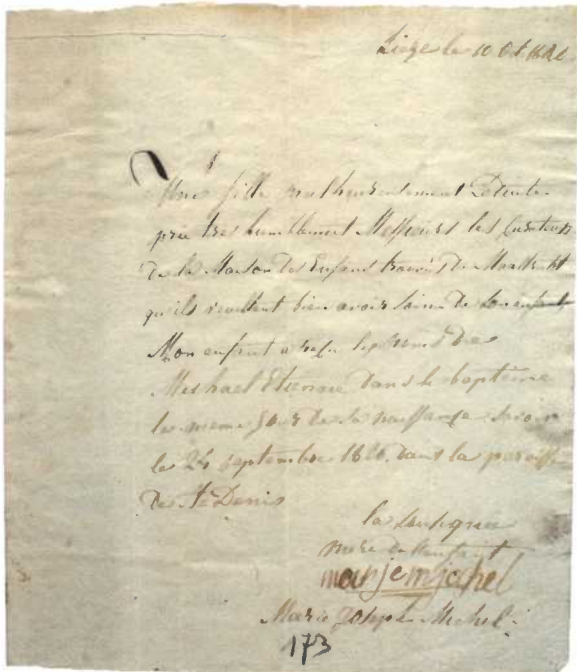 Liege le 10 Oct
Une fille malheureusement Detenite
prie tres humblement Messieurs les Curateurs
de la Maison des Enfans trouvés de Mastricht
qu'ils veuillent bien avoir soin de son enfant
Mon enfant a reçu les prenoms de
Michael Etienne dans le baptême
le même jour de sa naissance
le 24 septembre 1826. dans la paroisse
De St Denis
la soussignee
mere de l'enfant
Marie Joseph Michel
173